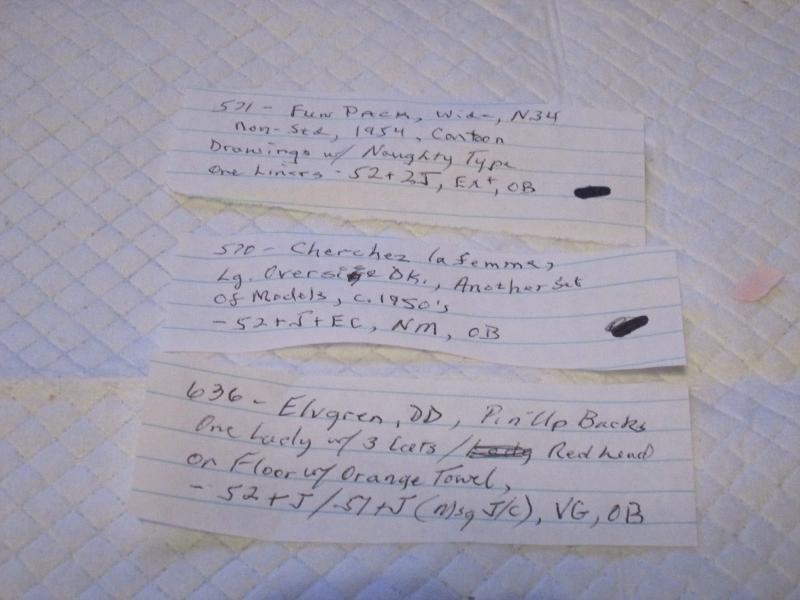 571 - Fun Pack, Wide, N34
Non-Std, 1954, Cartoon
Drawings w/ Naughty Type
One Liners - 52+2J, Ex+, OB
570 - Cherchez la femme,
Lg. Oversize DK., Another Set
Of Models, c. 1950's
- 52+J+EC, NM, OB
636 - Elvgren, DD, Pin-Up Backs
One Lady w/ 3 Cats / Redhead
on Floor w/ Orange Towel,
- 52+J/51+J (Msg J/C), VG, OB